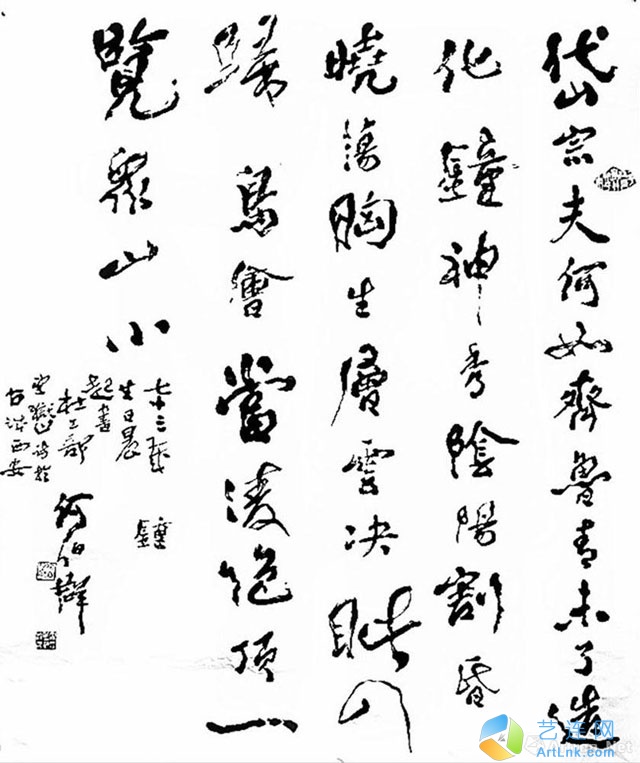 岱宗夫何如齊魯青未了造
化鐘神秀陰陽割昏
曉蕩胸生層雲決眥入
歸鳥會當凌絕頂一
覽眾山小
七十三歲
生日晨
起書
杜工部
望嶽詩於
古城西安
鐘
何伯群
艺连网
ArtLnk.com